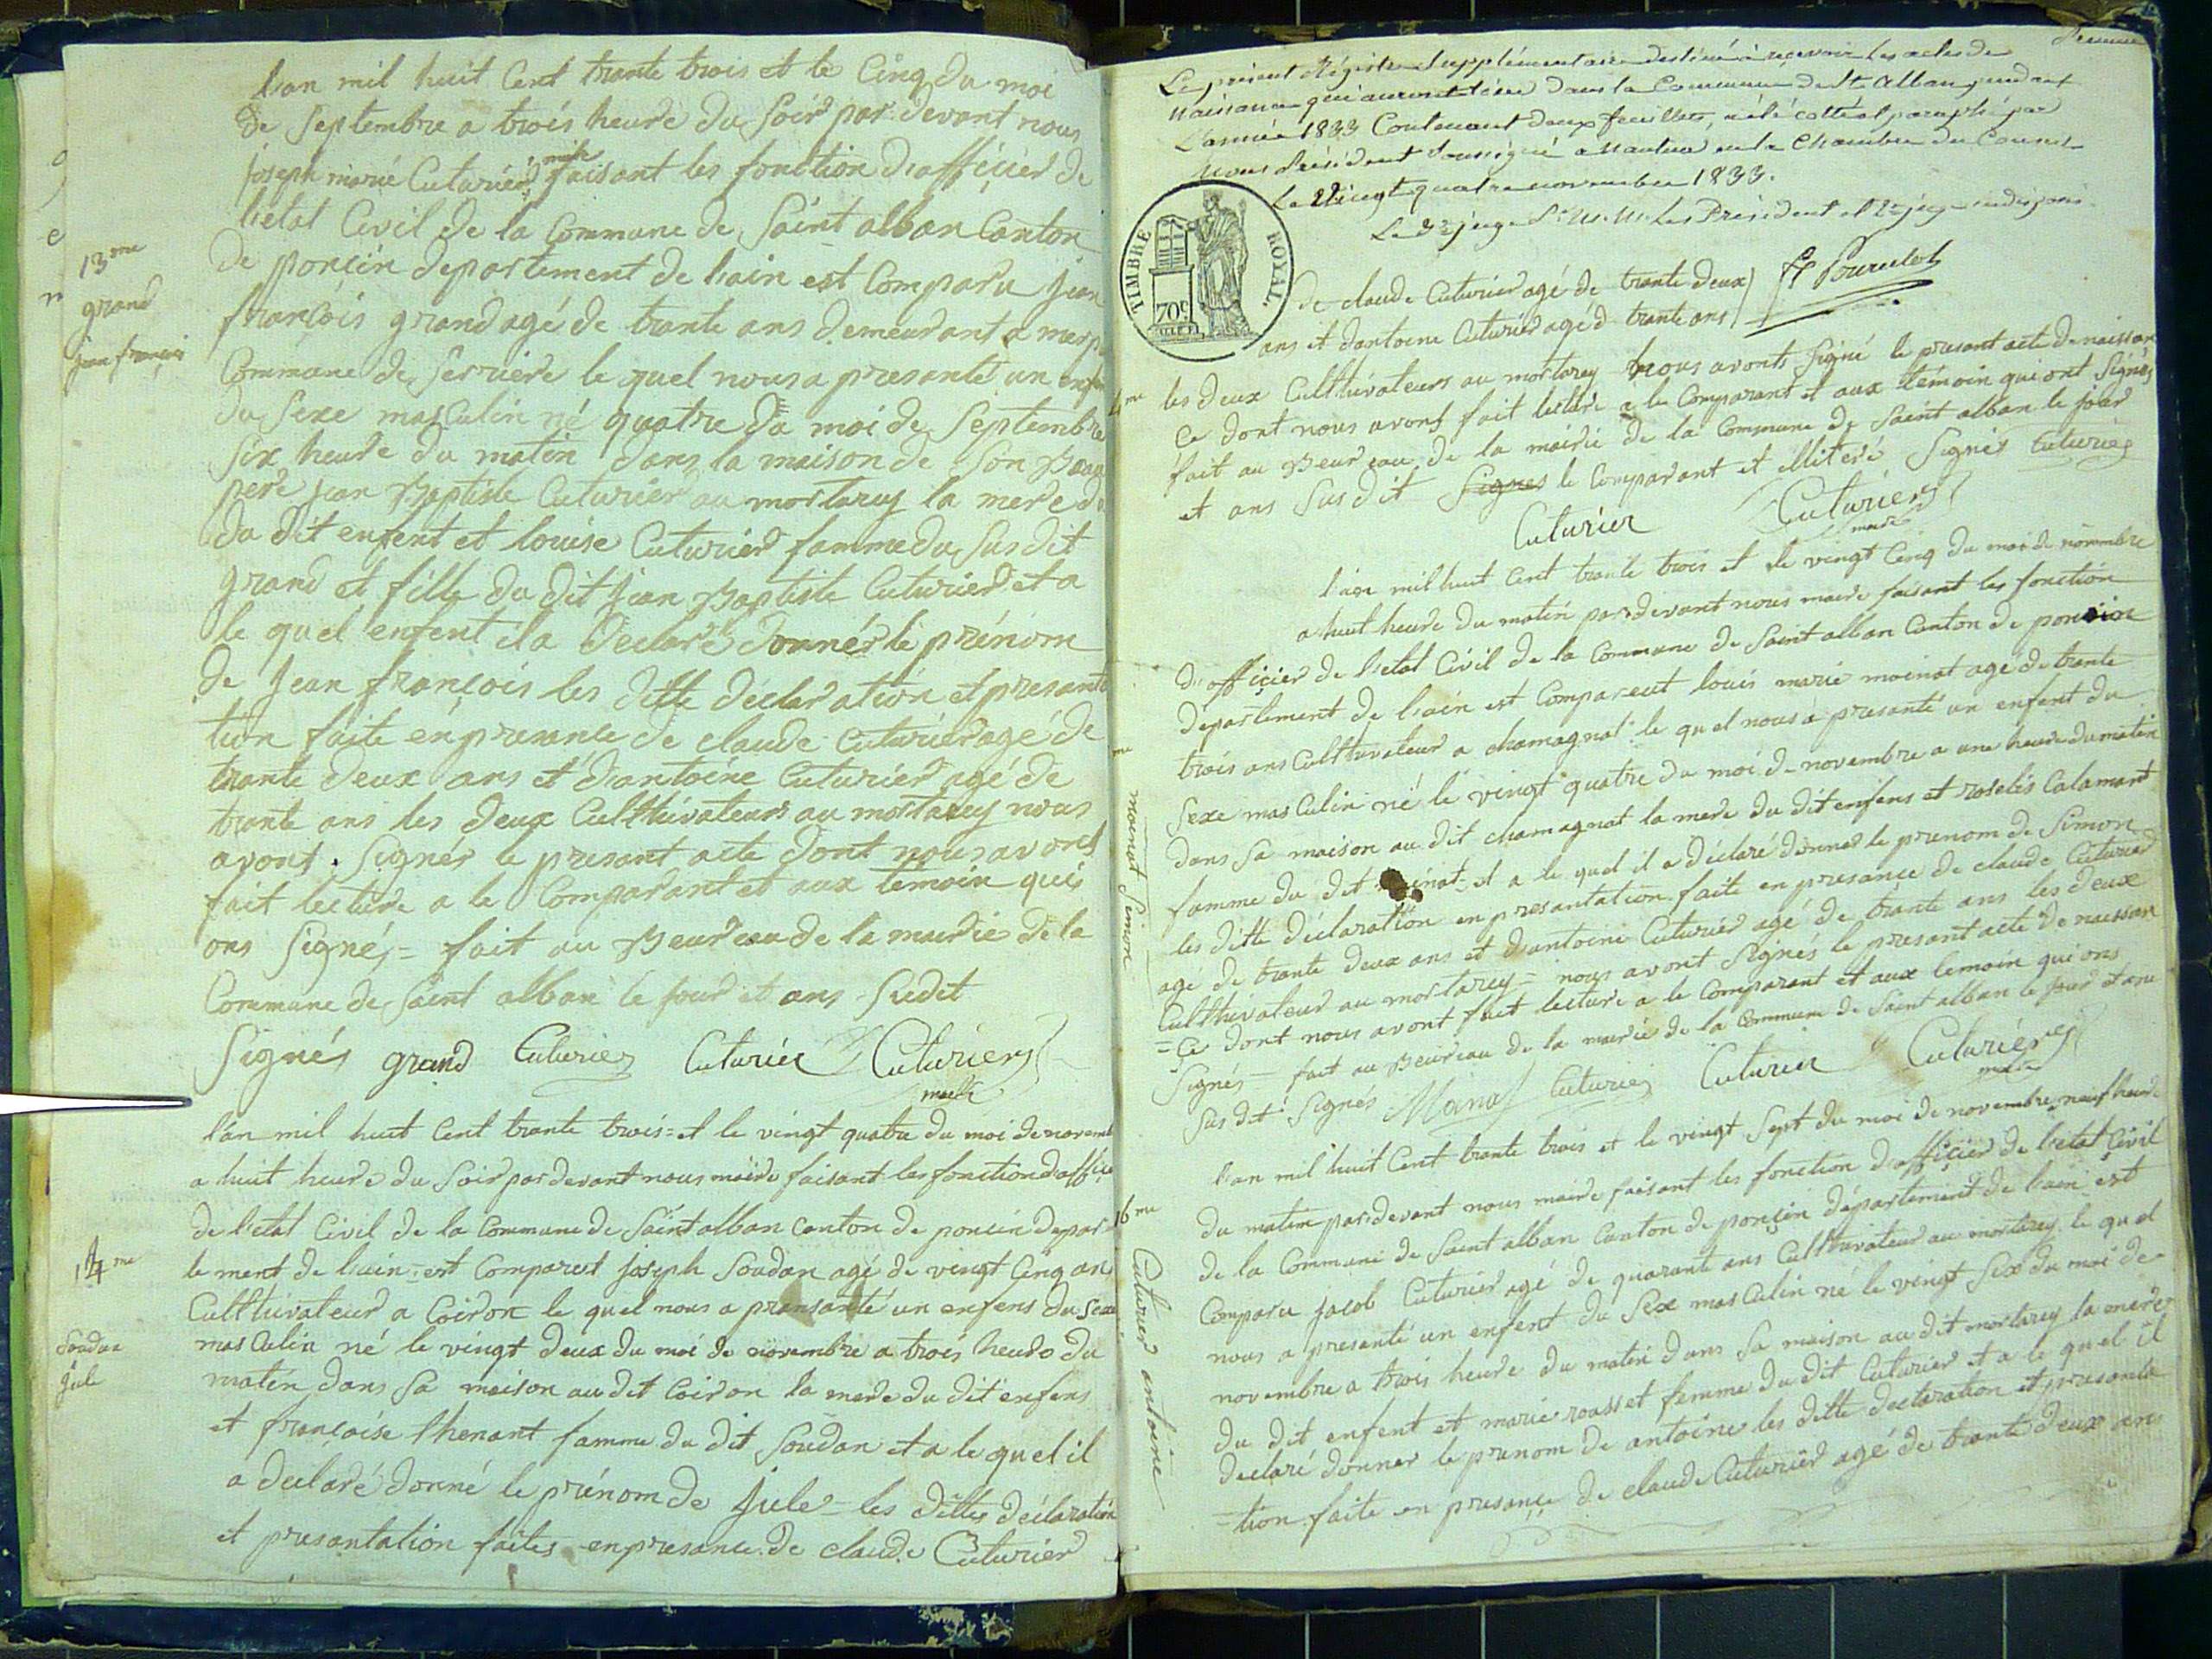 13me
grand
jean françois
l'an mil huit Cent trante trois et le Cinq du moi
de Septembre a trois heure du Soir par devant nous
joseph marie Cuturier faisant les fonction d'afficier de
l'etat Civil de la Commune de Saint alban Canton
de poncin departement de l'ain est Comparu jean
françois grand agé de trante ans demeurant a
Commune de Serriere le quel nous a presanté un
du Sexe masCulin né quatre du moi de Septembre
Six heure du matin dans la maison de Son Beau
pere jean Baptiste Cuturier au mortarey la mere
du dit enfent et louise Cuturier famme du Sus dit
grand et fille du dit jean Baptiste Cuturier et a
le quel enfent il a declaré donnér le prénom
de jean françois les ditte déclaration et presanta
tion faite en presance de claude Cuturier agé de
trante deux ans et d'antoine Cuturier agé de
trante ans les deux Culthivateurs au mortarey nous
avont Signér le presant acte dont nous avons
fait lecture a le Comparant et aux témoin qui
ons Signés = fait au Beureau de la mairie de la
Commune de Saint alban le jour et ans Sudit
Signés grand Cuturier Cuturier Cuturier
maire
14me
Soudan
jule
l'an mil huit Cent trante trois = et le vingt quatre du moi de novemb
a huit heure du Soir par devant nous maire faisant les fonction d'affice
de l'etat Civil de la Commune de Saint alban Canton de poncin depar
te ment de l'ain = est Comparut joseph Soudan agé de vingt Cinq ans
Culthivateur a Coiron le quel nous a pransanté un enfens du Sexe
masCulin né le vingt deux du moi de novembre a trois heure du
matin dans Sa maison au dit Coiron la mere du dit enfens
et françoise thenant famme du dit Soudan et a le quel il
a declaré donné le prénom de jule = les dittes déclaration
et presantation faites en presance de claude Cuturier
Le présent Régistre Supplémentaire destiné à recevoir les actes de
naissance qui auront lieu dans la Commune de St Alban pendant
L'année 1833 Contenant deux feuillets, a été cotté et paraphé par
Nous Président Soussigné a Nantua en la Chambre du Conseil
Le Vingt quatre novembre 1833.
TIMBRE ROYAL.
70c
de claude Cuturier agé de trante deux
ans et d'antoine Cuturier agé d trante ans
les deux Culthivateurs au mortarey nous avonts Signé le presant acte de naissan
Ce dont nous avons fait lecture a le Comparant et aux témoin qui ont Signés
fait au Beureau de la mairie de la Commune de Saint alban le jour
et ans Sus dit Signés le Comparant et illiteré Signés Cuturier
Cuturier Cuturier
maire
moinat Simon
l'an mil huit Cent trante trois et le vingt Cinq du moi de novembre
a huit heure du matin par devant nous maire faisant les fonction
d'afficier de l'etat Civil de la Commune de Saint alban Canton de poncin
departement de l'ain est Comparent louis marie moinat agé de trante
trois ans Culthivateur a chamagnat le quel nous a presanté un enfent du
Sexe masCulin né le vingt quatre du moi d novembre a une heure du matin
dans Sa maison au dit chamagnat la mere du dit enfens et Calamant
famme du dit et a le quel il a déclaré donner le prenom de Simon
les ditte déclaration en presantation faite en presance de claude Cuturier
agé de trante deux ans et d'antoine Cuturier agé de trante ans les deux
Culthivateur au mortarey = nous avont Signés le presant acte de naissan
= Ce dont nous avont fait lecture a le Comparant et aux temoin qui ons
Signés = fait au Beureau de la mairie de la Commune de Saint alban le jour et ans
Sus dit Signés Moinat Cuturier Cuturier Cuturier
maire
16me
Cuturier antoine
l'an mil huit Cent trante trois et le vingt Sept du moi de novembre neuf heure
du matin par devant nous maire faisant les fonction d'afficier de l'etat Civil
de la Commune de Saint alban Canton de poncin département de l'ain est
Comparu jacob Cuturier agé de quarante ans Culthivateur au mortarey le quel
nous a presanté un enfent du Sexe masCulin né le vingt Six du moi de
novembre a trois heure du matin dans Sa maison au dit mortarey la mere
du dit enfent et marie rousset femme du dit Cuturier et a le quel il
declaré donner le prenom de antoine les ditte declaration et presanta
= tion faite en presance de claude Cuturier agé de trante deux ans